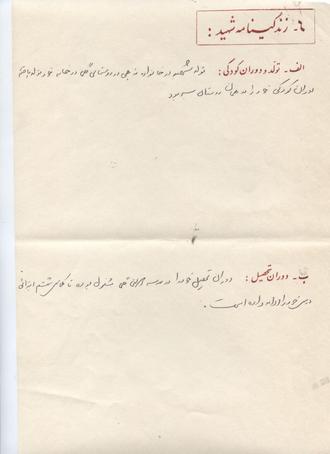 ۶- زندگینامه شهید:
الف- تولد و دوران کودکی: تولد شهید در خانواده مذهبی در روستای در خانه خود متولد یافته
دوران کودکی خود را در همان روستا بسر برد
ب- دوران تحصیل: دوران تحصیل خود را در مدسه مشغول بوده تا کلاس ششم ابتدائی
درس خود را ادامه داده است.